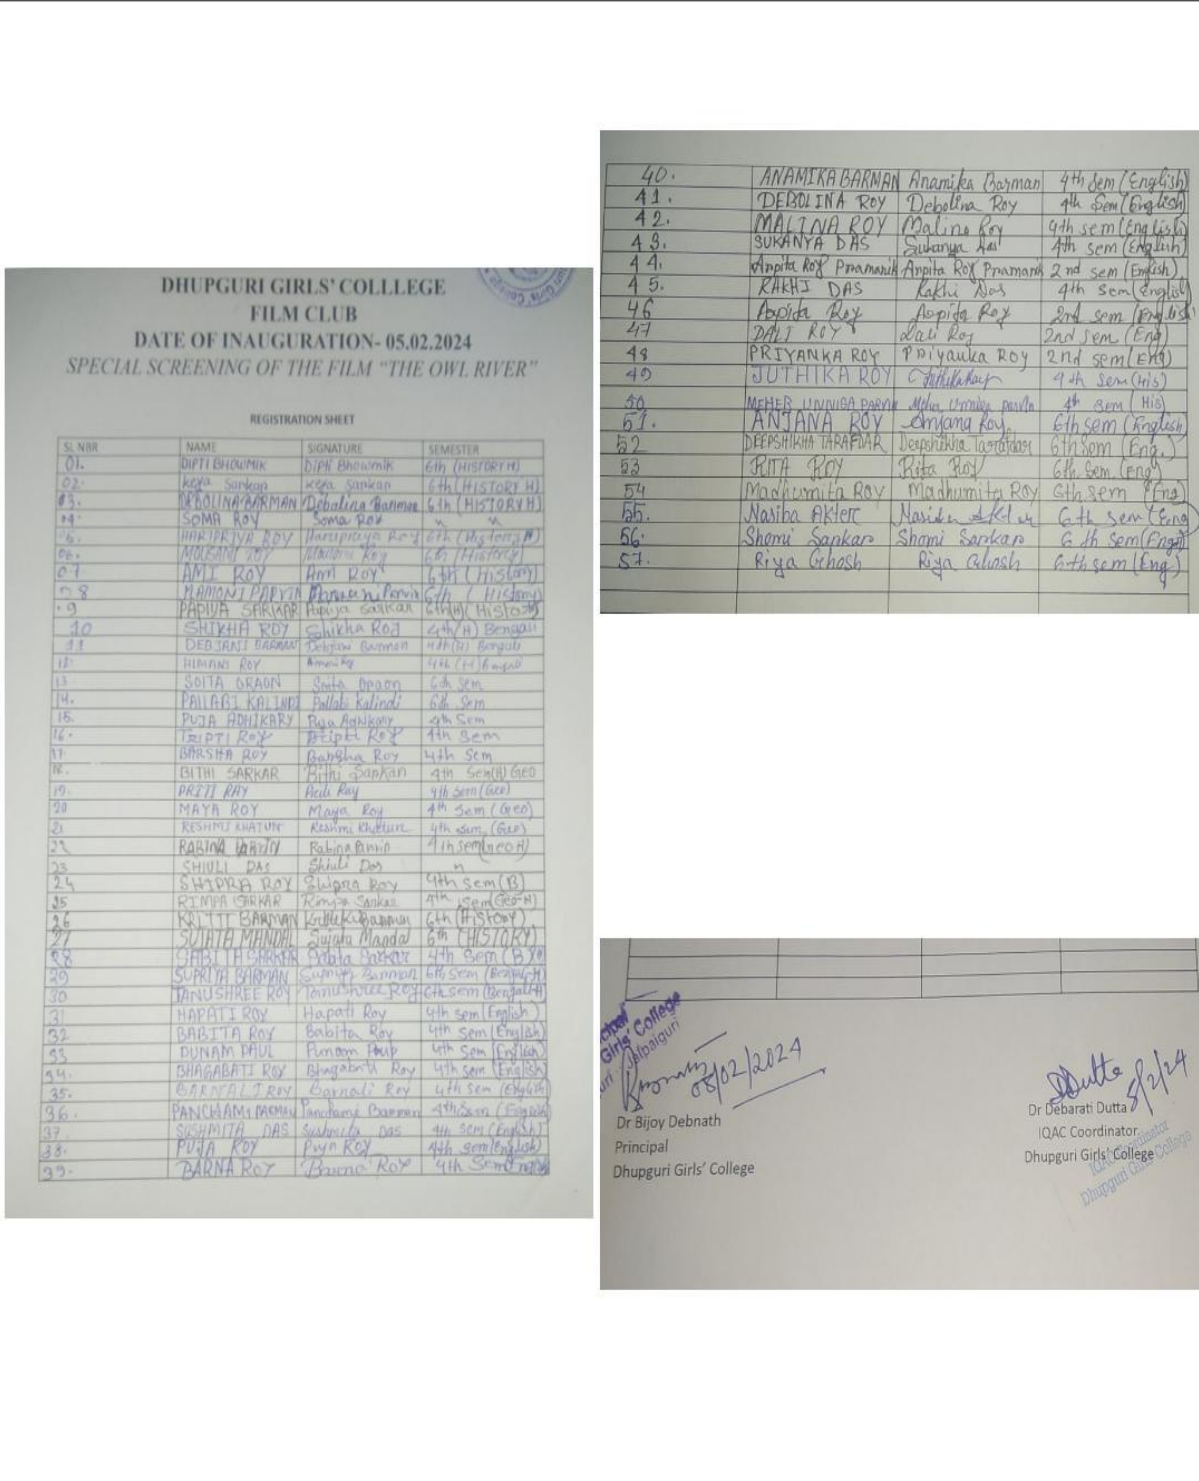 DHUPGURI GIRLS' COLLLEGE
FILM CLUB
DATE OF INAUGURATION- 05.02.2024
SPECIAL SCREENING OF THE FILM "THE OWL RIVER"
REGISTRATION SHEET
SL NBR NAME SIGNATURE SEMESTER
01. DIPTI BHOWMIK Dipti Bhowmik 6th (HISTORY H)
02. keya Sarkar keya Sarkar 6th (HISTORY H)
03. DEBOLINA BARMAN Debalina Barman 6th (HISTORY H)
04. SOMA ROY Soma Roy " "
05. HARIPRIYA ROY Haripriya Roy 6th (History H)
06. MOUSAMI ROY Mousami Roy 6th (History)
07 AMI ROY Ami Roy 6th (History)
08 MAMONI PARVIN Mamoni Parvin 6th (History)
09 PAPIYA SARKAR Papiya Sarkar 6th(H)(History)
10 SHIKHA ROY Shikha Roy 4th(H) Bengali
11 DEBJANI BARMAN Debjani Barman 4th(H) Bengali
12 HIMANI ROY 4th (H)
13 SOITA ORAON Soita Oraon 6th Sem
14. PALLABI KALINDI Pallabi Kalindi 6th Sem
15. PUJA ADHIKARY Puja Adhikary 4th Sem
16. TRIPTI ROY Tripti Roy 4th Sem
17. BARSHA ROY Barsha Roy 4th Sem
18. BITHI SARKAR Bithi Sarkar 4th Sem(H) Geo
19. PRITI RAY Priti Ray 4th Sem(Geo)
20 MAYA ROY Maya Roy 4th Sem (Geo)
21 RESHMI KHATUN Reshmi Khatun 4th sem (Geo)
22 RABINA PARVIN Rabina Parvin 4th sem(Geo H)
23 SHIULI DAS Shiuli Das "
24 SHIPRA ROY Shipra Roy 4th Sem(B)
25 RIMPA SARKAR Rimpa Sarkar 4th sem(Geo-H)
26 KRITTI BARMAN Barman 6th (History)
27 SUJATA MANDAL Sujata Mandal 6th (HISTORY)
28 SABITA SARKAR Sabita Sarkar 4th Sem
29 SUPRIYA BARMAN Supriya Barman 6th Sem (Bengali H)
30 TANUSHREE ROY Tanushree Roy 6th sem (Bengali H)
31 HAPATI ROY Hapati Roy 4th sem (English)
32 BABITA ROY Babita Roy 4th Sem (English)
33 PUNAM PAUL Punam 4th Sem (English)
34. BHAGABATI ROY Bhagabati Roy 4th Sem (English)
35. BARNALI ROY Barnali Roy 4th sem (English)
36. PANCHAMI BARMAN Panchami Barman 4th Sem (English)
37. SUSHMITA DAS Sushmita Das 4th Sem (English)
38. PUJA ROY Puja Roy 4th sem(English)
39. BARNA ROY Barna Roy 4th Sem(English)
40. ANAMIKA BARMAN Anamika Barman 4th Sem (English)
41. DEBOLINA ROY Debolina Roy 4th Sem (English)
42. MALINA ROY Malina Roy 4th sem (English)
43. SUKANYA DAS Sukanya Das 4th sem (English)
44. Arpita Roy Pramanik Arpita Roy Pramanik 2nd sem (English)
45. RAKHI DAS Rakhi Das 4th Sem (English)
46 Arpita Roy Arpita Roy 2nd sem (English)
47 DALI ROY Dali Roy 2nd sem (Eng)
48 PRIYANKA ROY Priyanka Roy 2nd sem(Eng)
49 JUTHIKA ROY Juthika Roy 4th Sem(His)
50 MEHER UNNISA PARVIN Meher Unnisa parvin 4th sem (His)
51. ANJANA ROY Anjana Roy 6th sem (English)
52 DEEPSHIKHA TARAFDAR Deepshikha Tarafdar 6th sem (Eng.)
53 RITA ROY Rita Roy 6th Sem (Eng)
54 Madhumita ROY Madhumita ROY 6th sem (Eng)
55. Nasiba Akter 6th sem (Eng)
56. Shomi Sarkar Shomi Sarkar 6th Sem(Eng)
57. Riya Ghosh Riya Ghosh 6th sem (Eng)
Girls' College
Jalpaiguri
05/02/2024
Dr Bijoy Debnath
Principal
Dhupguri Girls' College
DDutta 5/2/24
Dr Debarati Dutta
IQAC Coordinator
Dhupguri Girls' College
IQAC Coordinator
Dhupguri Girls' College